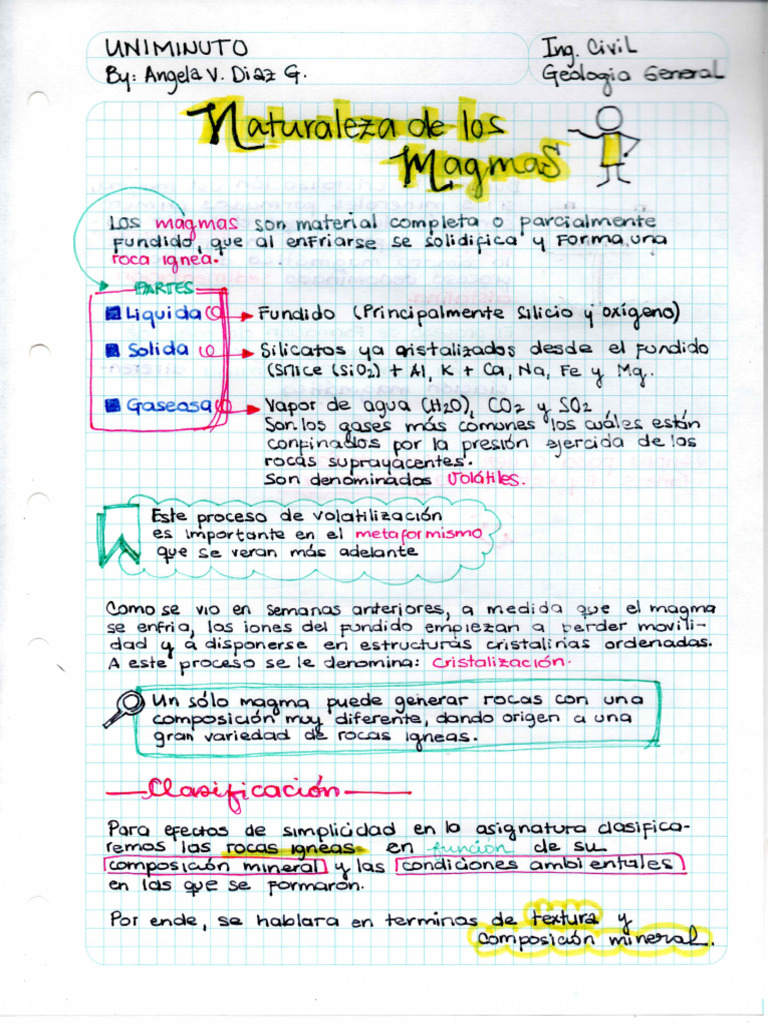 UNIMINUTO
Ing. Civil
By: Angela V. Diaz G.
Geologia General
Naturaleza de los
Magmas
Los magmas son material completa o parcialmente
fundido, que al enfriarse se solidifica y forma una
roca ignea.
PARTES
Liquida → Fundido (Principalmente silicio y oxígeno)
Solida → Silicatos ya cristalizados desde el fundido
(Sílice (SiO2) + Al, K + Ca, Na, Fe y Mg.
Gaseasa → Vapor de agua (H2O), CO2 y SO2,
Son los gases más comunes los cuáles están
confinados por la presión ejercida de las
rocas suprayacentes.
Son denominados Volátiles.
Este proceso de volatilización
es importante en el metaformismo
que se veran más adelante
Como se vio en semanas anteriores, a medida que el magma
se enfria, los iones del fundido empiezan a perder movili-
dad y a disponerse en estructuras cristalinas ordenadas.
A este proceso se le denomina: Cristalización.
Un sólo magma puede generar rocas con una
composición muy diferente, dando origen a una
gran variedad de rocas igneas.
Clasificación
Para efectos de simplicidad en la asignatura clasifica-
remos las rocas igneas en función de su
composición mineral y las condiciones ambientales
en las que se formaron.
Por ende, se hablara en terminos de textura y
composición mineral.